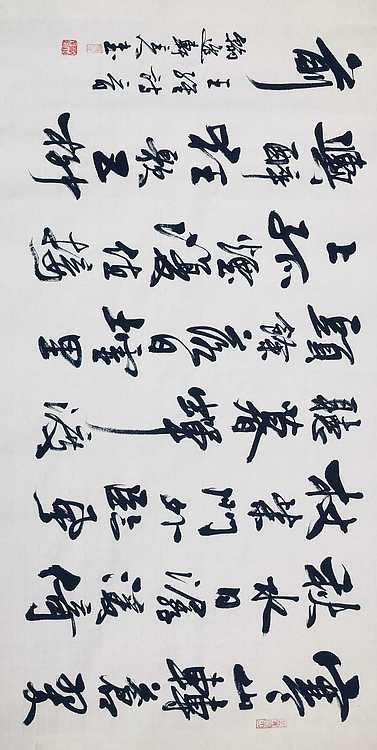 寒山轉蒼翠
秋水日潺湲倚
杖柴門外臨風
聽暮蟬渡
頭餘落日墟里
上孤煙復值接
輿醉狂歌五柳
前
王維詩首